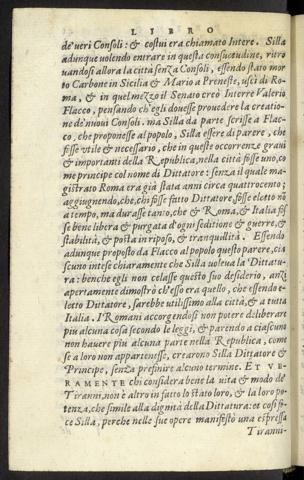 LIBRO
de'ueri Consoli: & costui era chiamato Intere. Silla
adunque uolendo entrare in questa consuetudine, ritro
uandosi allora la città senza Consoli, essendo stato mor
to Carbone in Sicilia & Mario a Preneste, uscì di Ro
ma, & in quel mezzo il Senato creò Interre Valerio
Flacco, pensando ch'egli douesse procedere la creatio=
ne de'nuoui Consoli. ma Silla da parte scrisse a Flac=
co, che proponesse al popolo, Silla essere di parere, che
fosse utile & necessario, che in queste occorrenze graui
& importanti della Republica, nella città fosse uno, co
me principe col nome di Dittatore: senza il quale ma=
gistrato Roma era già stata anni circa quattrocento;
aggiugnendo, che, chi fosse fatto Dittatore, fosse eletto nō
a tempo, ma durasse tanto, che & Roma, & Italia fos
se bene libera & purgata d'ogni seditione & guerre, &
stabilità, & posta in riposo, & tranquilità. Essendo
adunque proposto da Flacco al popolo questo parere, cia
scuno intese chiaramente che Silla uoleua la Dittatu=
ra: benche egli non celasse questo suo desiderio, anzi
apertamente dimostrò ch'esso era quello, che essendo e=
letto Dittatore, sarebbe utilissimo alla città, & a tutta
Italia. I Romani accorgendosi non potere deliberare
piu alcuna cosa secondo le leggi, & parendo a ciascuno
non hauere piu alcuna parte nella Republica, come
se a loro non appartenesse, crearono Silla Dittatore &
Principe, senza prefinire alcuno termine. ET VE=
RAMENTE chi considera bene la uita & modo de'
Tiranni, non è altro in fatto lo stato loro, & la loro po=
tenza, che simile alla dignità della Dittatura: et cosi fe=
ce Silla, perche nelle sue opere manifestò una espressa
Tiranni-